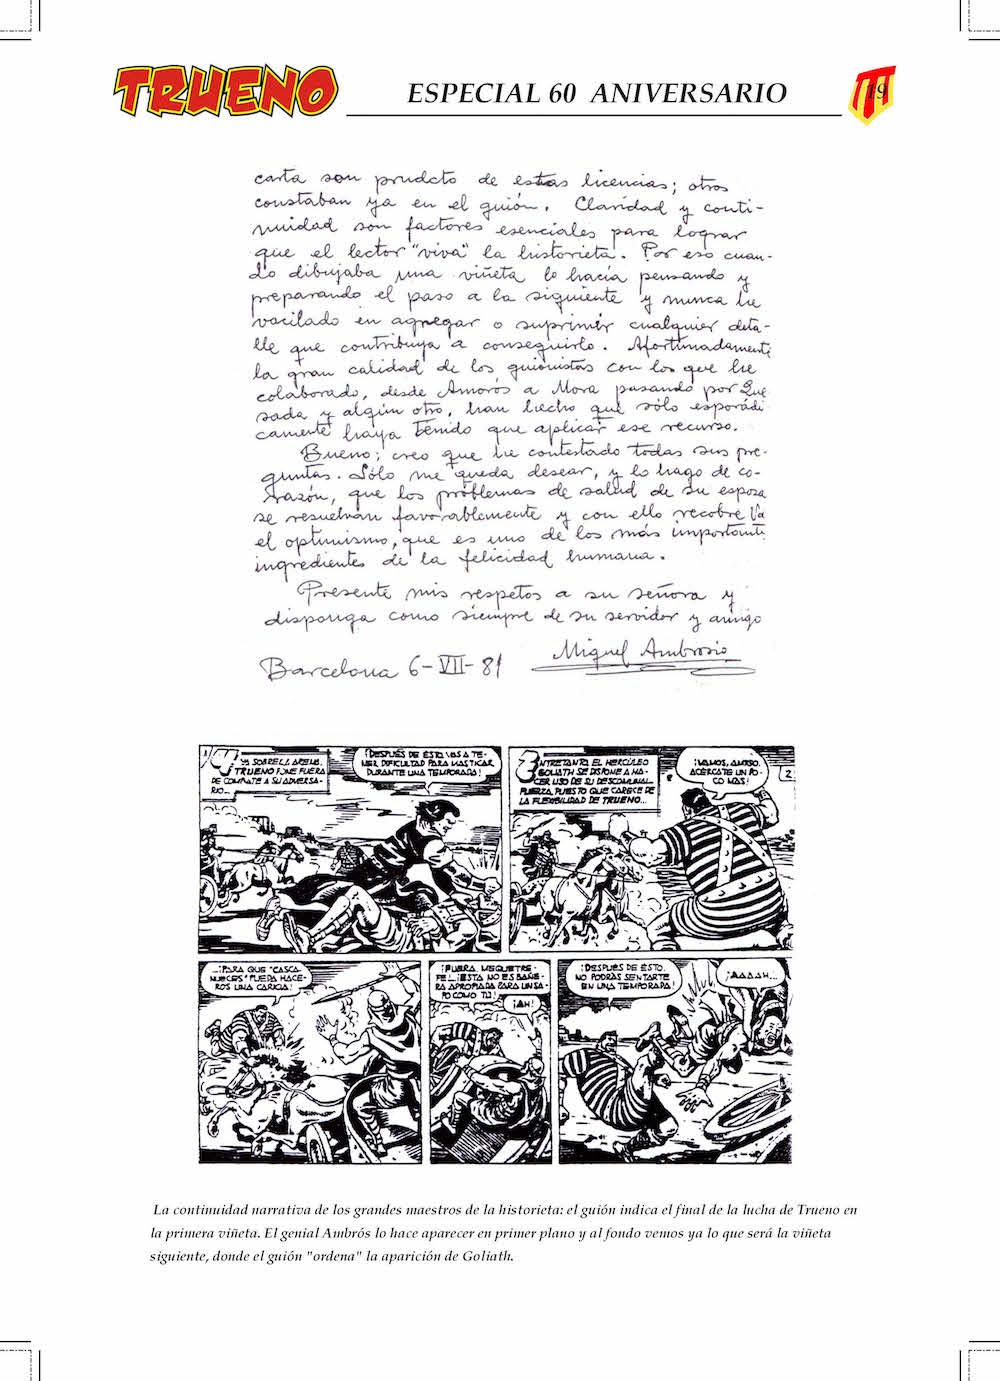 TRUENO
ESPECIAL 60 ANIVERSARIO
19
carta son prudcto de estas licencias; otros
constaban ya en el guión. Claridad y conti-
nuidad son factores esenciales para lograr
que el lector "viva" la historieta. Por eso cuan-
do dibujaba una viñeta lo hacía pensando y
preparando el paso a la siguiente y nunca he
vacilado en agregar o suprimir cualquier deta-
lle que contribuya a conseguirlo. Afortunadamente
la gran calidad de los guionistas con los que he
colaborado, desde Amorós a Mora pasando por Que
sada y algún otro, han hecho que sólo esporádi
camente haya tenido que aplicar ese recurso.
Bueno; creo que he contestado todas sus pre-
guntas. Sólo me queda desear, y lo hago de co-
razón, que los problemas de salud de su esposa
se resuelvan favorablemente y con ello recobre Vd
el optimismo, que es uno de los más importantes
ingredientes de la felicidad humana.
Presente mis respetos a su señora y
disponga como siempre de su servidor y amigo
Miguel Ambrosio
Barcelona 6-VII-81
1
YA SOBRE LA ARENA,
TRUENO PONE FUERA
DE COMBATE A SU ADVERSA-
RIO...
¡DESPUÉS DE ESTO VAS A TE-
NER DIFICULTAD PARA MASTICAR
DURANTE UNA TEMPORADA!
ENTRETANTO, EL HERCÚLEO
GOLIATH SE DISPONE A HA-
CER USO DE SU DESCOMUNAL
FUERZA, PUESTO QUE CARECE DE
LA FLEXIBILIDAD DE TRUENO...
¡VAMOS, AMIGO.
ACÉRCATE UN PO-
CO MÁS!
2
...¡PARA QUE "CASCA-
NUECES" PUEDA HACE-
ROS UNA CARICIA!
¡FUERA, MEQUETRE-
FE!...¡ESTA NO ES BAÑE-
RA APROPIADA PARA UN SA-
PO COMO TÚ!
¡AH!
¡DESPUÉS DE ESTO,
NO PODRÁS SENTARTE
EN UNA TEMPORADA!
¡AAAAH...
La continuidad narrativa de los grandes maestros de la historieta: el guión indica el final de la lucha de Trueno en
la primera viñeta. El genial Ambrós lo hace aparecer en primer plano y al fondo vemos ya lo que será la viñeta
siguiente, donde el guión "ordena" la aparición de Goliath.